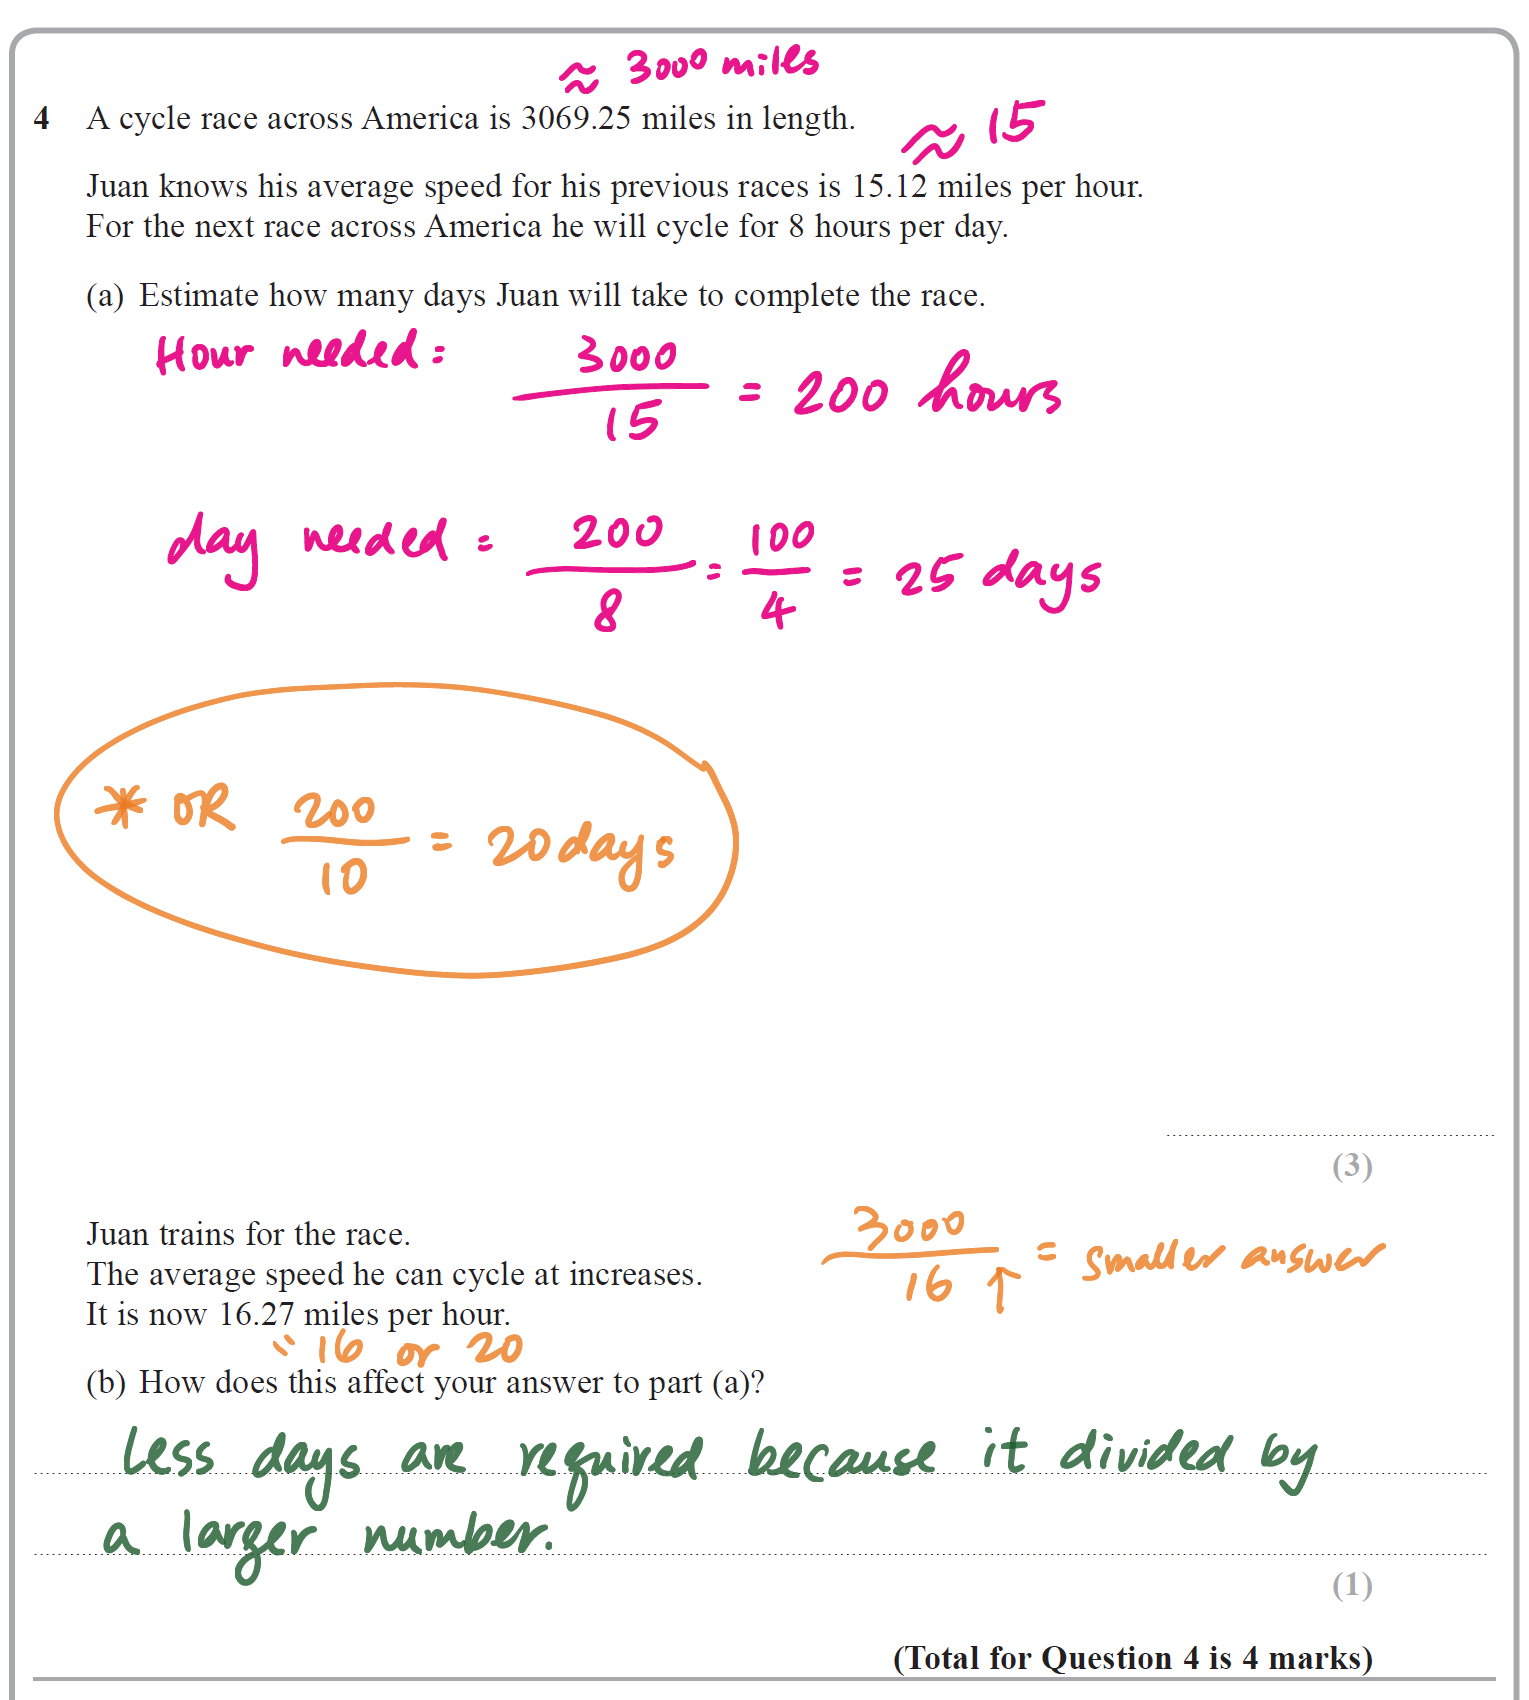 ≈ 3000 miles
4 A cycle race across America is 3069.25 miles in length.
≈ 15
Juan knows his average speed for his previous races is 15.12 miles per hour.
For the next race across America he will cycle for 8 hours per day.
(a) Estimate how many days Juan will take to complete the race.
Hour needed: 3000/15 = 200 hours
day needed = 200/8 = 100/4 = 25 days
* OR 200/10 = 20 days
(3)
Juan trains for the race.
The average speed he can cycle at increases.
It is now 16.27 miles per hour.
3000/16 ↑ = smaller answer
≈ 16 or 20
(b) How does this affect your answer to part (a)?
Less days are required because it divided by
a larger number.
(1)
(Total for Question 4 is 4 marks)